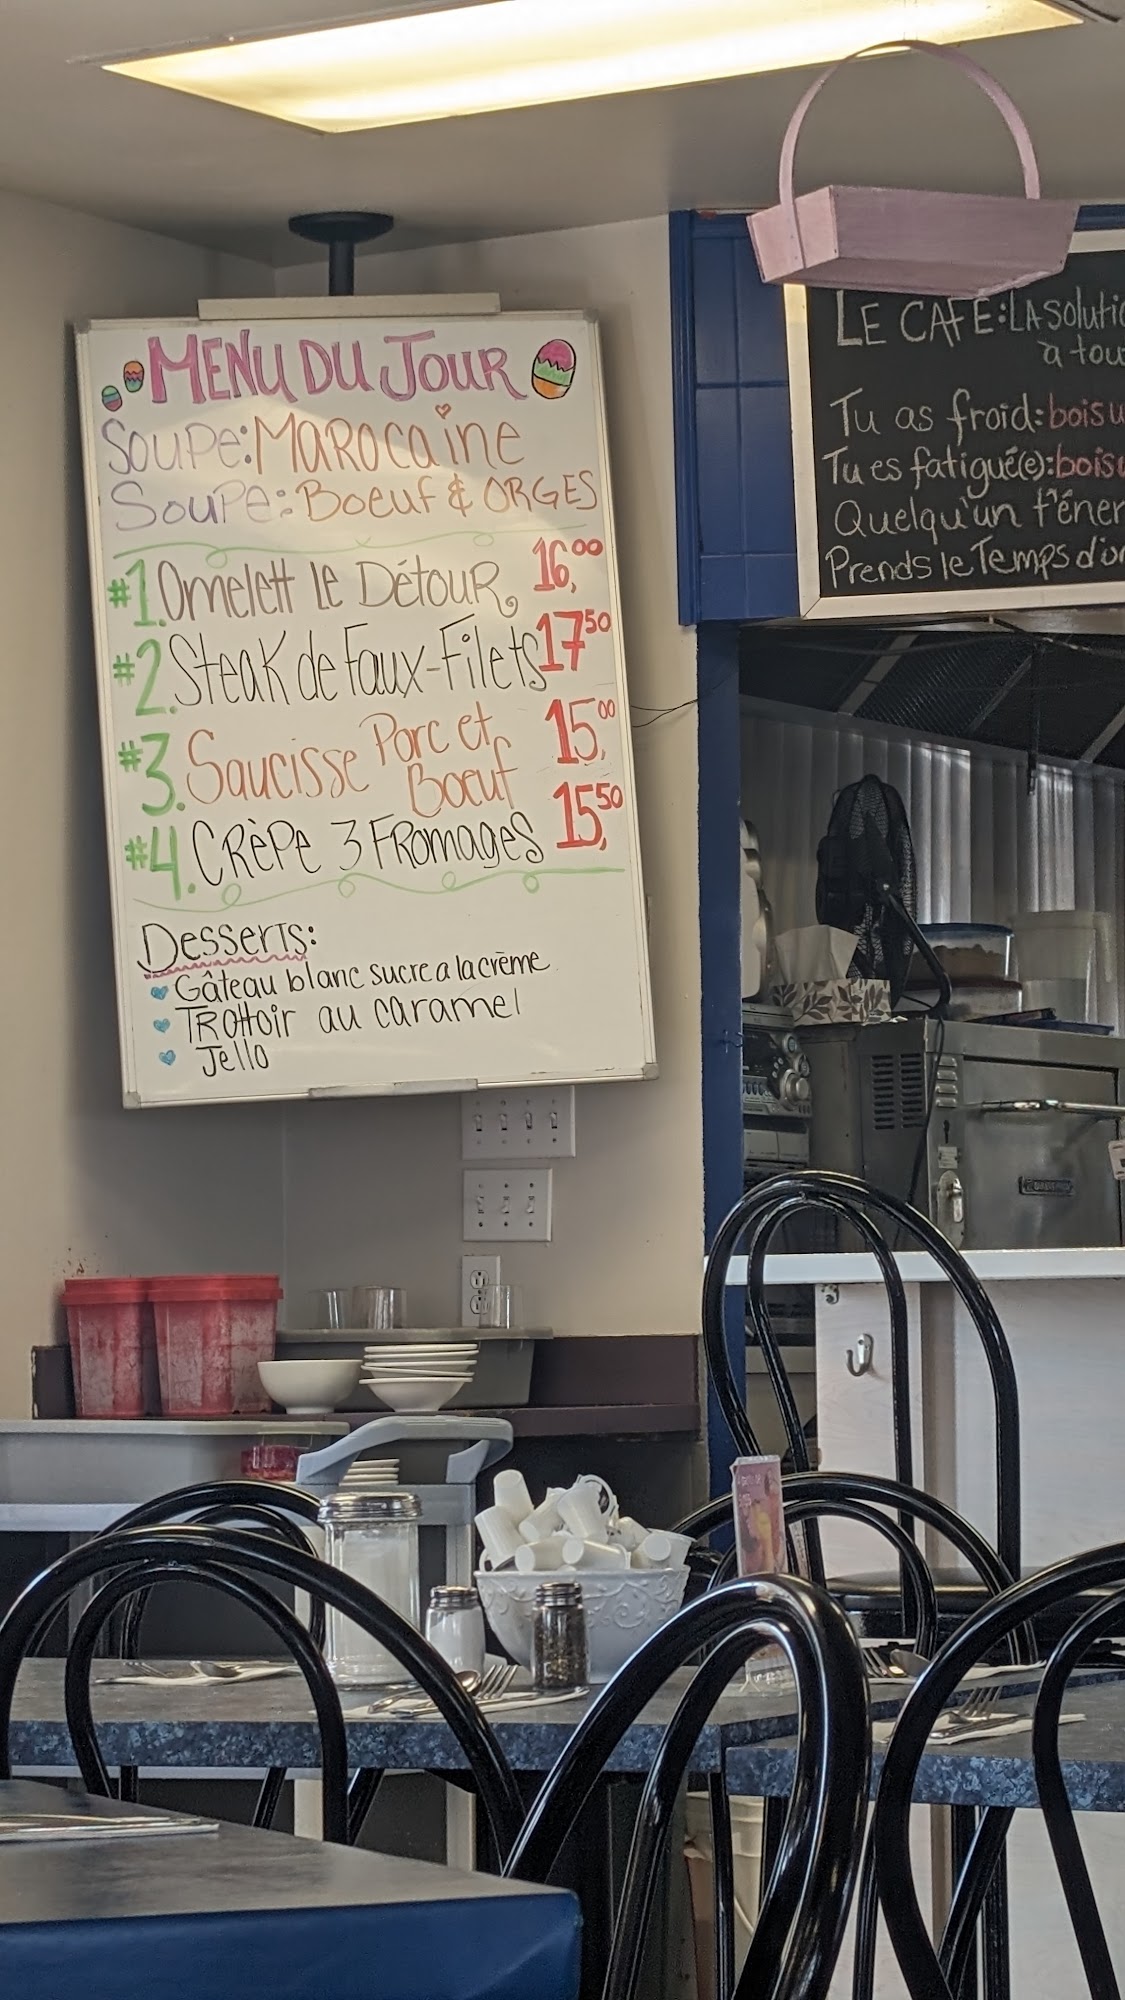 MENU DU JOUR
SOUPE: MAROCAINE
SOUPE: BOEUF & ORGES
#1. Omelett Le DÉTOUR 16,00
#2. Steak de Faux-Filets 17 50
#3. Saucisse Porc et Boeuf 15,00
#4. CRèPe 3 FRomages 15,50
Desserts:
Gâteau blanc sucre a la crème
TRottoir au caramel
Jello
LE CAFE: LA
à
Tu as froid:
Tu es fatigué(e):
Quelqu'un
Prends le Temps